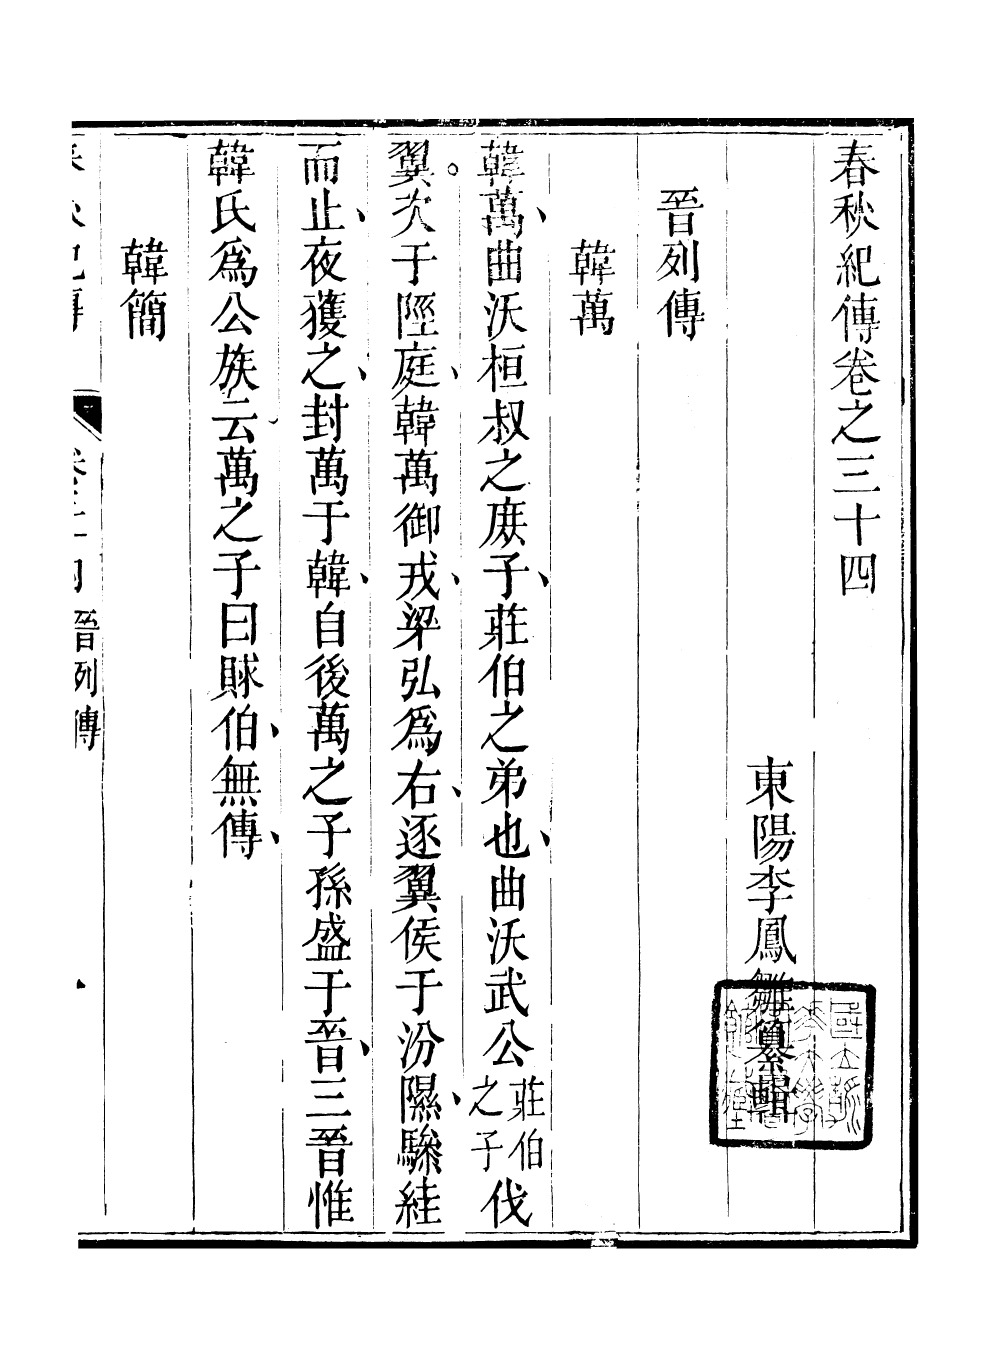 春秋紀傳卷之三十四
東陽李鳳雛纂輯
晉列傳
韓萬
韓萬、曲沃桓叔之庶子、莊伯之弟也、曲沃武公莊伯之子伐
翼。次于陘庭、韓萬御戎、梁弘爲右、逐翼侯于汾隰、驂絓
而止、夜獲之、封萬于韓、自後萬之子孫盛于晉、三晉惟
韓氏爲公族云萬之子曰賕伯、無傳、
韓簡
晉列傳